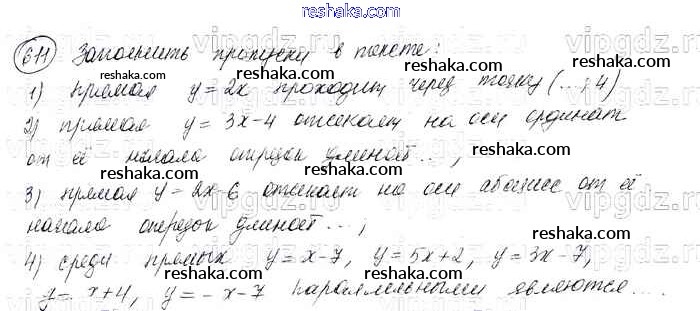 611 Заполнить пропуски в тексте:
1) прямая y = 2x проходит через точку (...; 4)
2) прямая y = 3x-4 отсекает на оси ординат
от её начала отрезок длиной ... ;
3) прямая y = 2x-6 отсекает на оси абсцисс от её
начала отрезок длиной ... ;
4) среди прямых y = x-7, y = 5x+2, y = 3x-7,
y = x+4, y = -x-7 параллельными являются ....
reshaka.com
reshaka.com
reshaka.com
reshaka.com
reshaka.com
reshaka.com
reshaka.com
reshaka.com
reshaka.com
reshaka.com
reshaka.com
reshaka.com
reshaka.com
vipgdz.ru